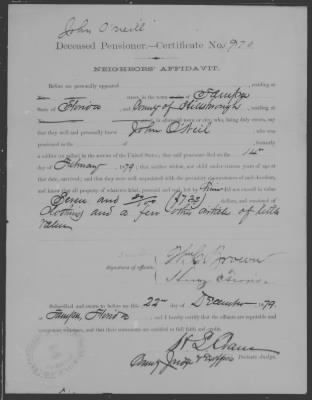 John O'neill
Deceased Pensioner.—Certificate No. 970.
NEIGHBORS' AFFIDAVIT.
Before me personally appeared residing at
street, in the town of Tampa
State of Florida and County of Hillsborough, residing at
in aforesaid town or city, who, being duly sworn, say
that they well and personally knew John O'Neil, who was
pensioned in the of , formerly
a soldier (or sailor) in the service of the United States; that said pensioner died on the 14th
day of February 1879; that neither widow, nor child under sixteen years of age at
that date, survived; and that they were well acquainted with the pecuniary circumstances of said decedent,
and know that all property of whatever kind, personal and real, left by him did not exceed in value
Seven and dollars, and consisted of
clothing and a few other articles of little
value
Signatures of affiants,
Brown
Henry
Subscribed and sworn to before me this 22nd day of December 1879.
Tampa, Florida and I hereby certify that the affiants are reputable and
competent witnesses, and that their statements are entitled to full faith and credit.
County Judge Probate Judge.